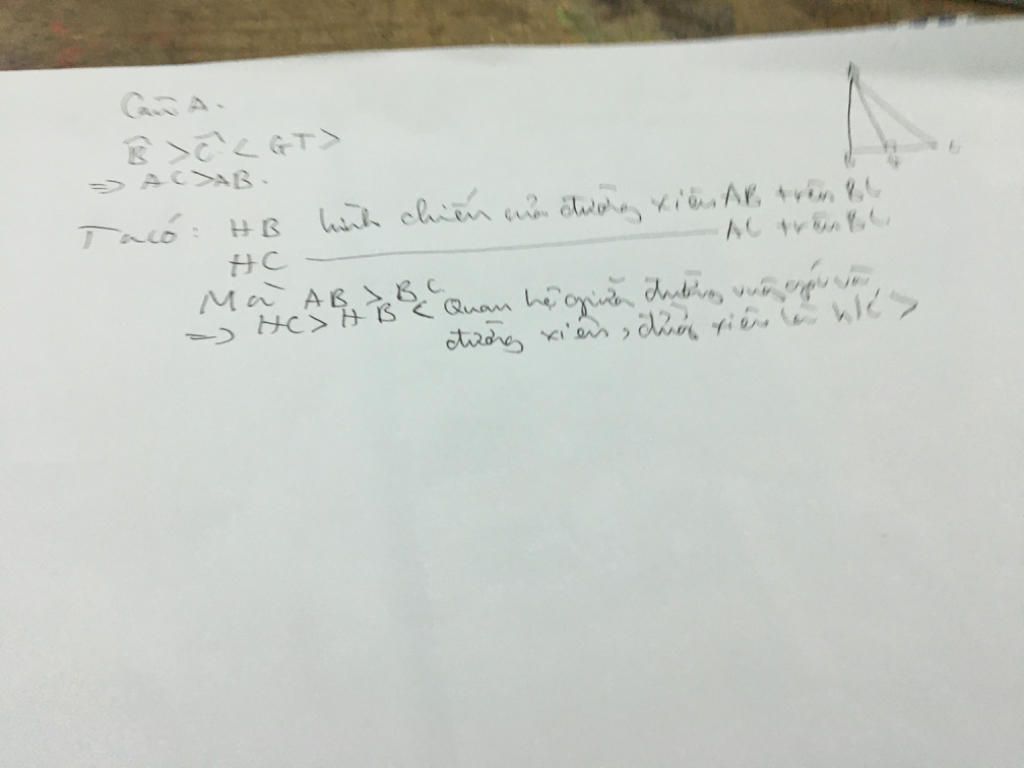 Câu A.
B̂ > Ĉ < GT >
=> AC > AB.
Ta có: HB hình chiếu của đường xiên AB trên BC
HC ———— AC trên BC.
Mà AB > BC
=> HC > HB < Quan hệ giữa đường vuông góc và
đường xiên, đường xiên và h/c >